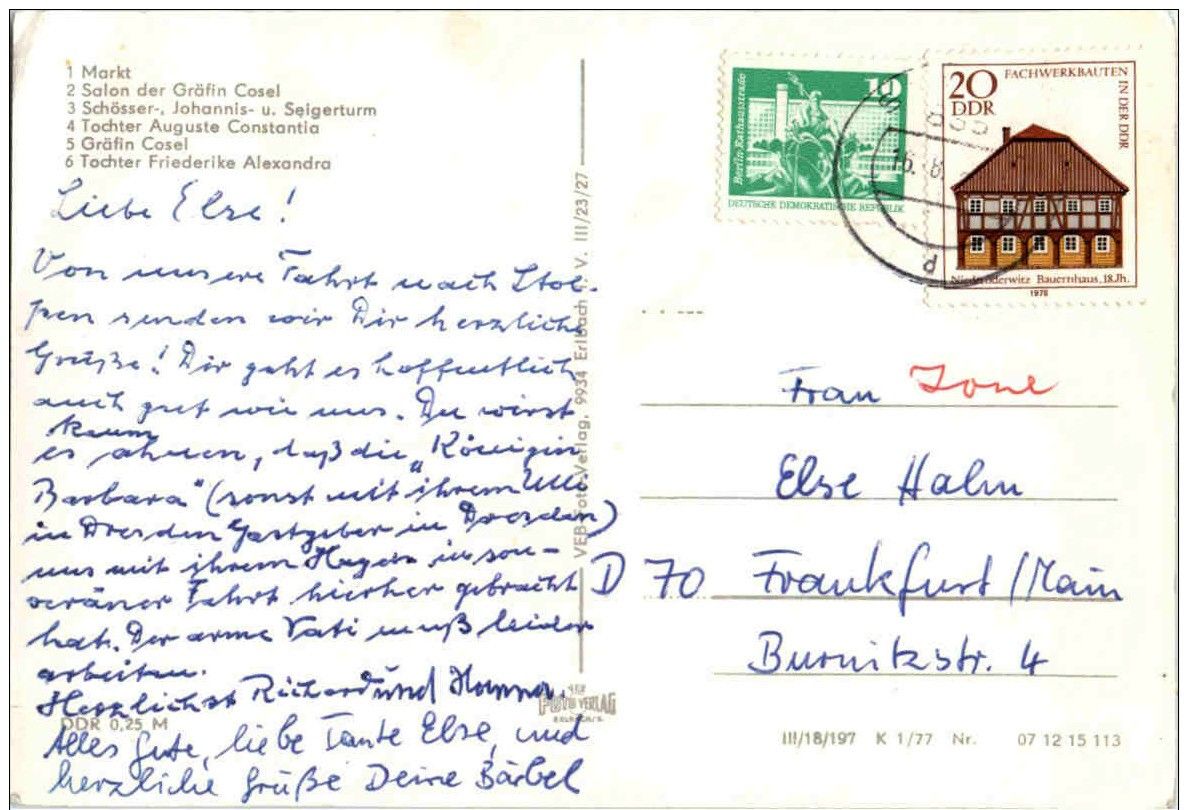 1 Markt
2 Salon der Gräfin Cosel
3 Schösser-, Johannis- u. Seigerturm
4 Tochter Auguste Constantia
5 Gräfin Cosel
6 Tochter Friederike Alexandra
Liebe Else!
Von unsere Fahrt nach Stol-
pen senden wir Dir herzliche
Grüße! Dir geht es hoffentlich
auch gut wie uns. Du wirst
kaum
es ahnen, daß die „Königin
Barbara" (sonst mit ihrem
in Dresden Gastgeber in Dresden)
uns mit ihrem in sou-
veräner Fahrt hierher gebracht
hat. Der arme Vati muß leider
arbeiten.
Herzlichst Richard und Hanna.
Alles Gute, liebe Tante Else, und
herzliche Grüße Deine Bärbel
DDR 0,25 M
VEB Foto-Verlag, 9934 Erlbach i. V. III/23/27
FOTO VERLAG
10
Berlin-Rathausstraße
DEUTSCHE DEMOKRATISCHE REPUBLIK
20
DDR
FACHWERKBAUTEN
IN DER DDR
Niederoderwitz Bauernhaus, 18.Jh.
1978
Frau
Else Hahn
D 70 Frankfurt/Main
Burnitzstr. 4
III/18/197 K 1/77 Nr. 07 12 15 113